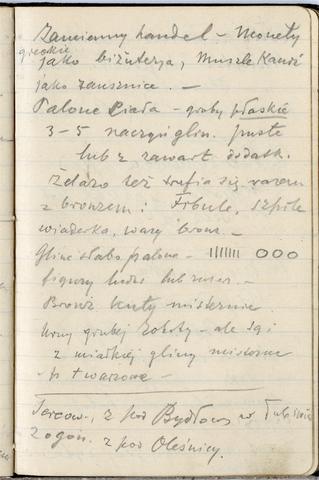 Zamienny handel – Monety
greckie
jako biżuterja, Muszle Kauri
jako zausznice. –
Palone Ciała – groby płaskie
3–5 naczyń glin. puste
lub z zawart. dodatk.
żelazo też trafia się razem
z bronzem: Fibule, szpile
wiaderka, wazy bronz. –
Gline słabo palone – ||||||| OOO
figury ludz. lub zwierz. –
Bronz kuty misternie
Urny grubej roboty – ale są i
z miałkiej gliny misternie
– p
z pod Bydłowa w
z pod Oleśnicy.